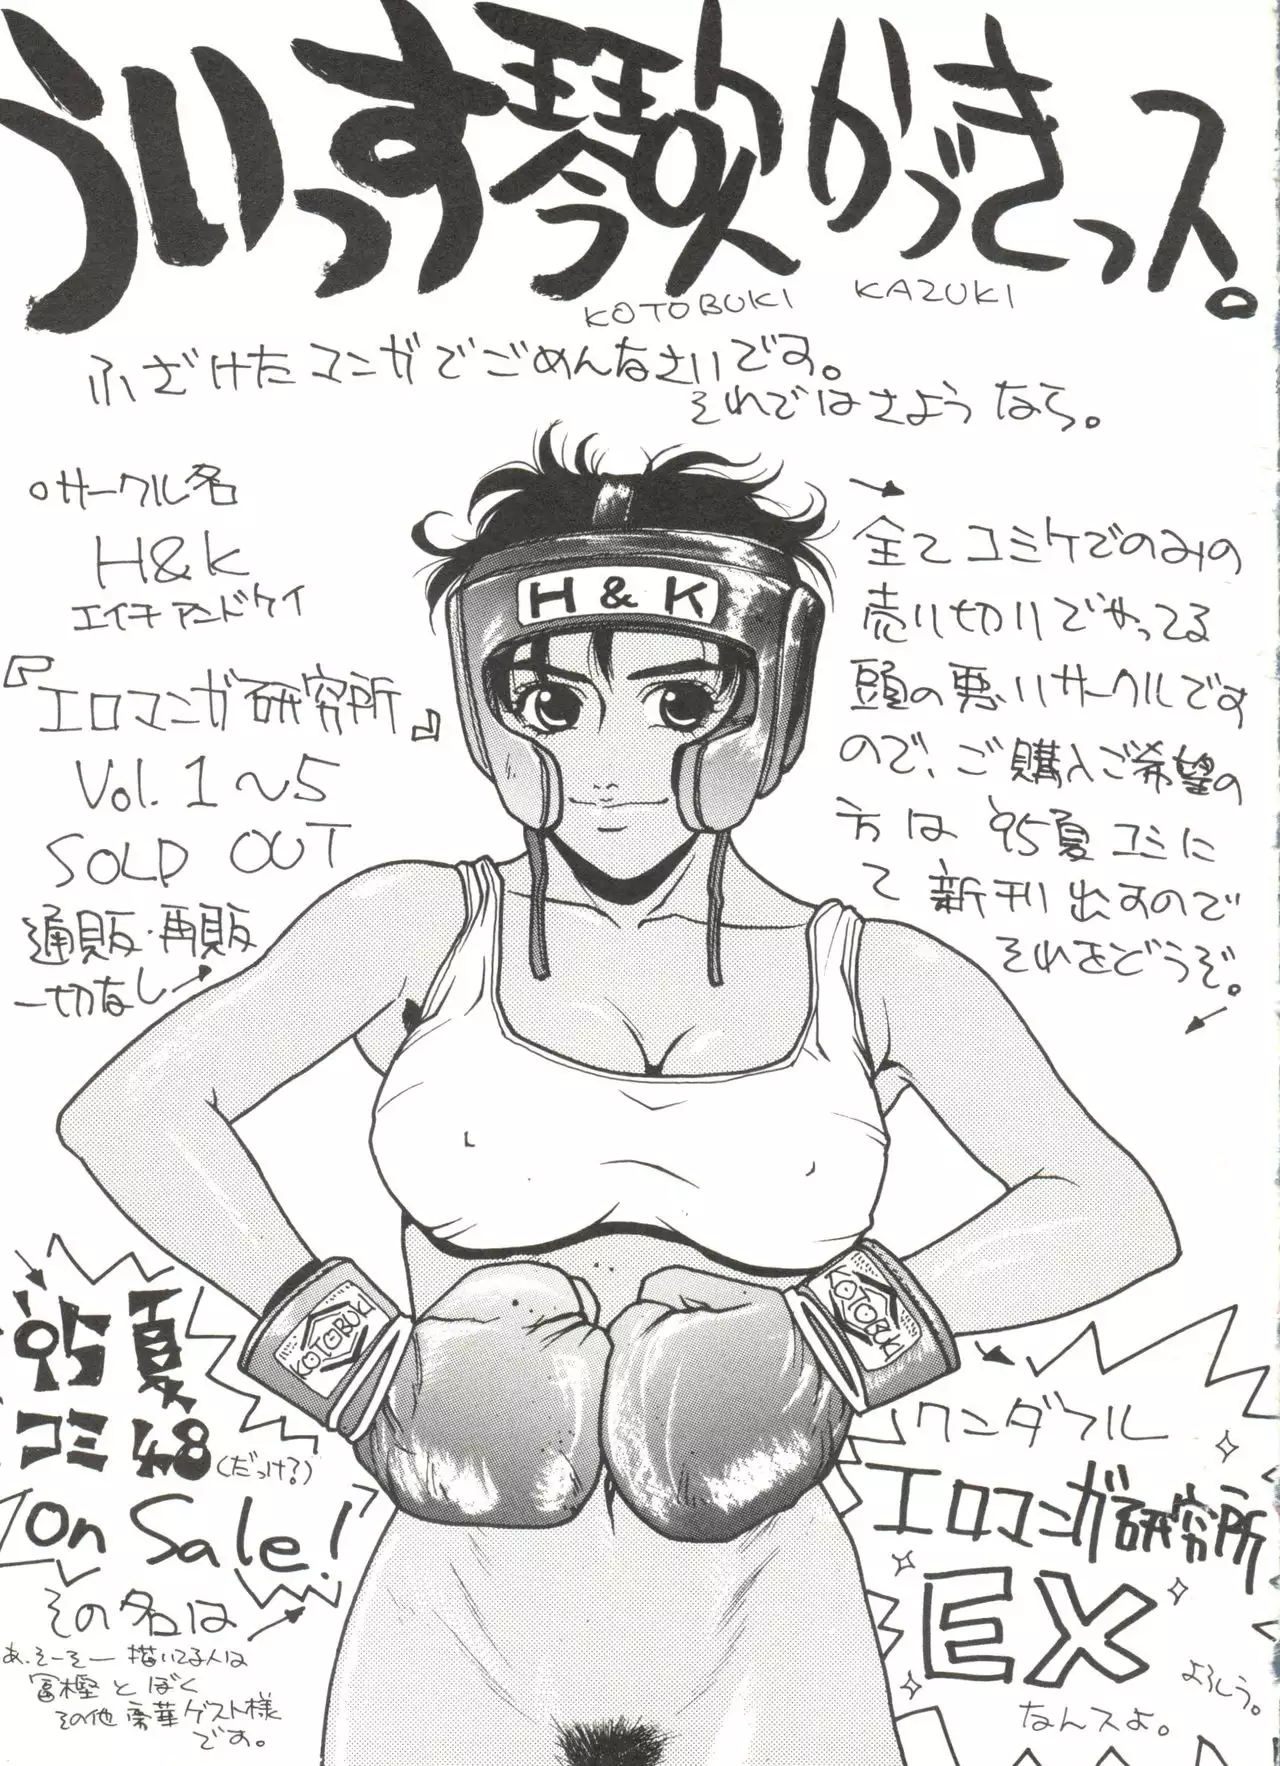 ういっす琴吹かづきっス。
KOTOBUKI KAZUKI
ふざけたマンガでごめんなさいです。
それではさようなら。
○サークル名
H&K
エイチアンドケイ
『エロマンガ研究所』
Vol.1〜5
SOLD OUT
通販・再販
一切なし→
全てコミケでのみの
売り切りでやってる
頭の悪いサークルです
ので、ご購入ご希望の
方は '95夏コミに
て新刊出すので
それをどうぞ。
H&K
KOTOBUKI
KOTOBUKI
'95夏
コミ48(だっけ?)
on Sale!
その名は
あ、そーそー描いてる人は
冨樫とぼく
その他豪華ゲスト様
です。
ワンダフル
エロマンガ研究所
EX
なんスよ。
よろしう。